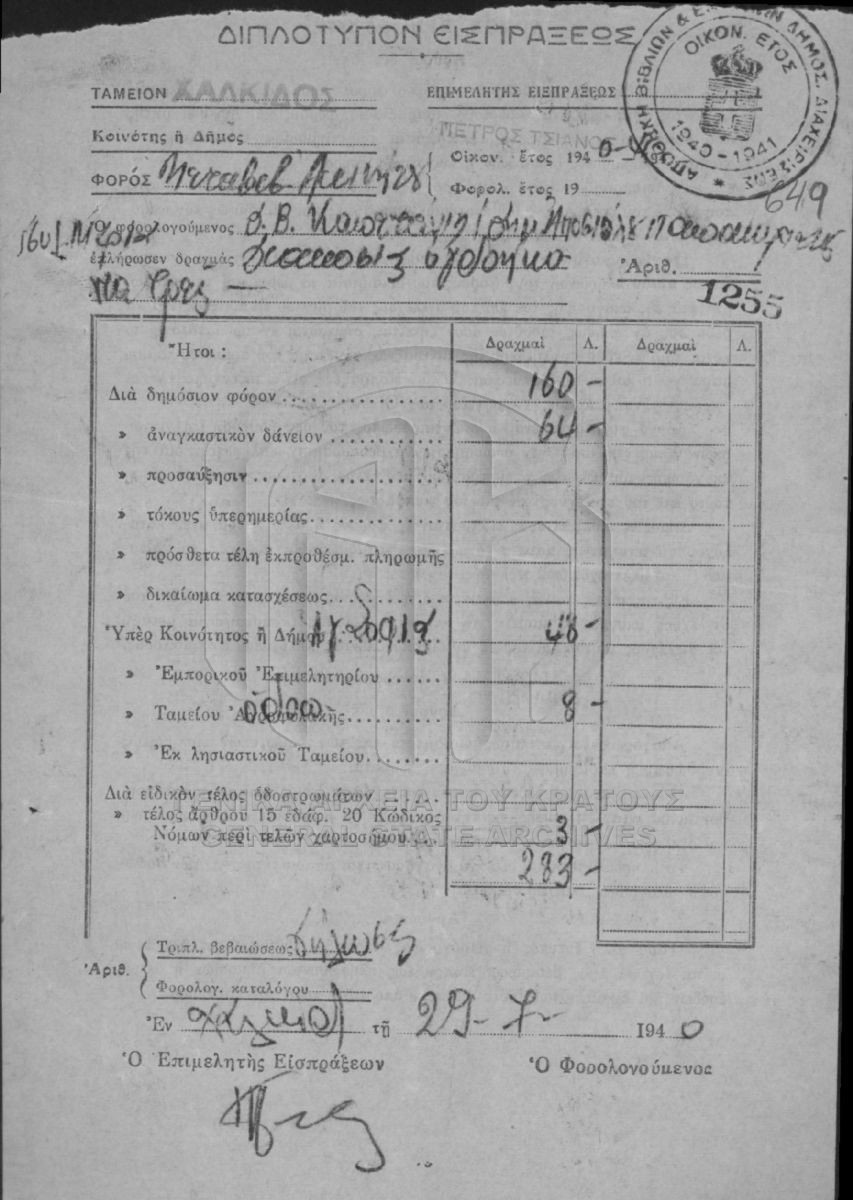 ΔΙΠΛΟΤΥΠΟΝ ΕΙΣΠΡΑΞΕΩΣ
ΑΠΟΘΗΚΗ ΒΙΒΛΙΩΝ & ΔΗΜΟΣ. ΔΙΑΧΕΙΡΙΣΕΩΣ
ΟΙΚΟΝ. ΕΤΟΣ
1940-1941
ΤΑΜΕΙΟΝ ΧΑΛΚΙΔΟΣ
ΕΠΙΜΕΛΗΤΗΣ ΕΙΣΠΡΑΞΕΩΣ
ΠΕΤΡΟΣ ΤΣΙΑΝΟΣ
Κοινότης ἢ Δῆμος
Οἰκον. ἔτος 1940-41
ΦΟΡΟΣ
Φορολ. ἔτος 19
649
Ὁ φορολογούμενος
ἐπλήρωσεν δραχμὰς διακοσίας ὀγδοήκο
Ἀριθ. 1255
ντα τρεῖς
Ἤτοι : Δραχμαὶ Λ. Δραχμαὶ Λ.
Διὰ δημόσιον φόρον 160 -
» ἀναγκαστικὸν δάνειον 64 -
» προσαύξησιν
» τόκους ὑπερημερίας
» πρόσθετα τέλη ἐκπροθέσμ. πληρωμῆς
» δικαίωμα κατασχέσεως
Ὑπὲρ Κοινότητος ἢ Δήμου 48 -
» Ἐμπορικοῦ Ἐπιμελητηρίου
» Ταμείου 8 -
» Ἐκ λησιαστικοῦ Ταμείου
Διὰ εἰδικὸν τέλος ὁδοστρωμάτων
ΓΕΝΙΚΑ ΑΡΧΕΙΑ ΤΟΥ ΚΡΑΤΟΥΣ
» τέλος ἄρθρου 15 ἐδάφ. 20 Κώδικος
Νόμων περὶ τελῶν χαρτοσήμου 3 -
GENERAL STATE ARCHIVES
283 -
Ἀριθ.
Τριπλ. βεβαιώσεως δήλωσις
Φορολογ. καταλόγου
Ἐν Χαλκίδι τῇ 29 - 7 - 1940
Ὁ Ἐπιμελητὴς Εἰσπράξεων
Ὁ Φορολογούμενος